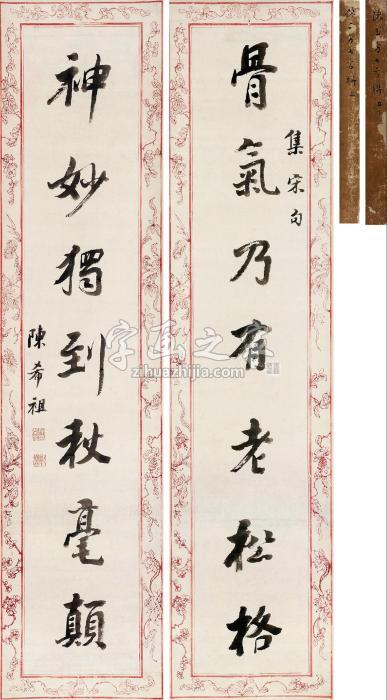 骨氣乃有老松格
集宋句
神妙獨到秋毫顛
陳希祖
字画之家
zihuazhijia.com